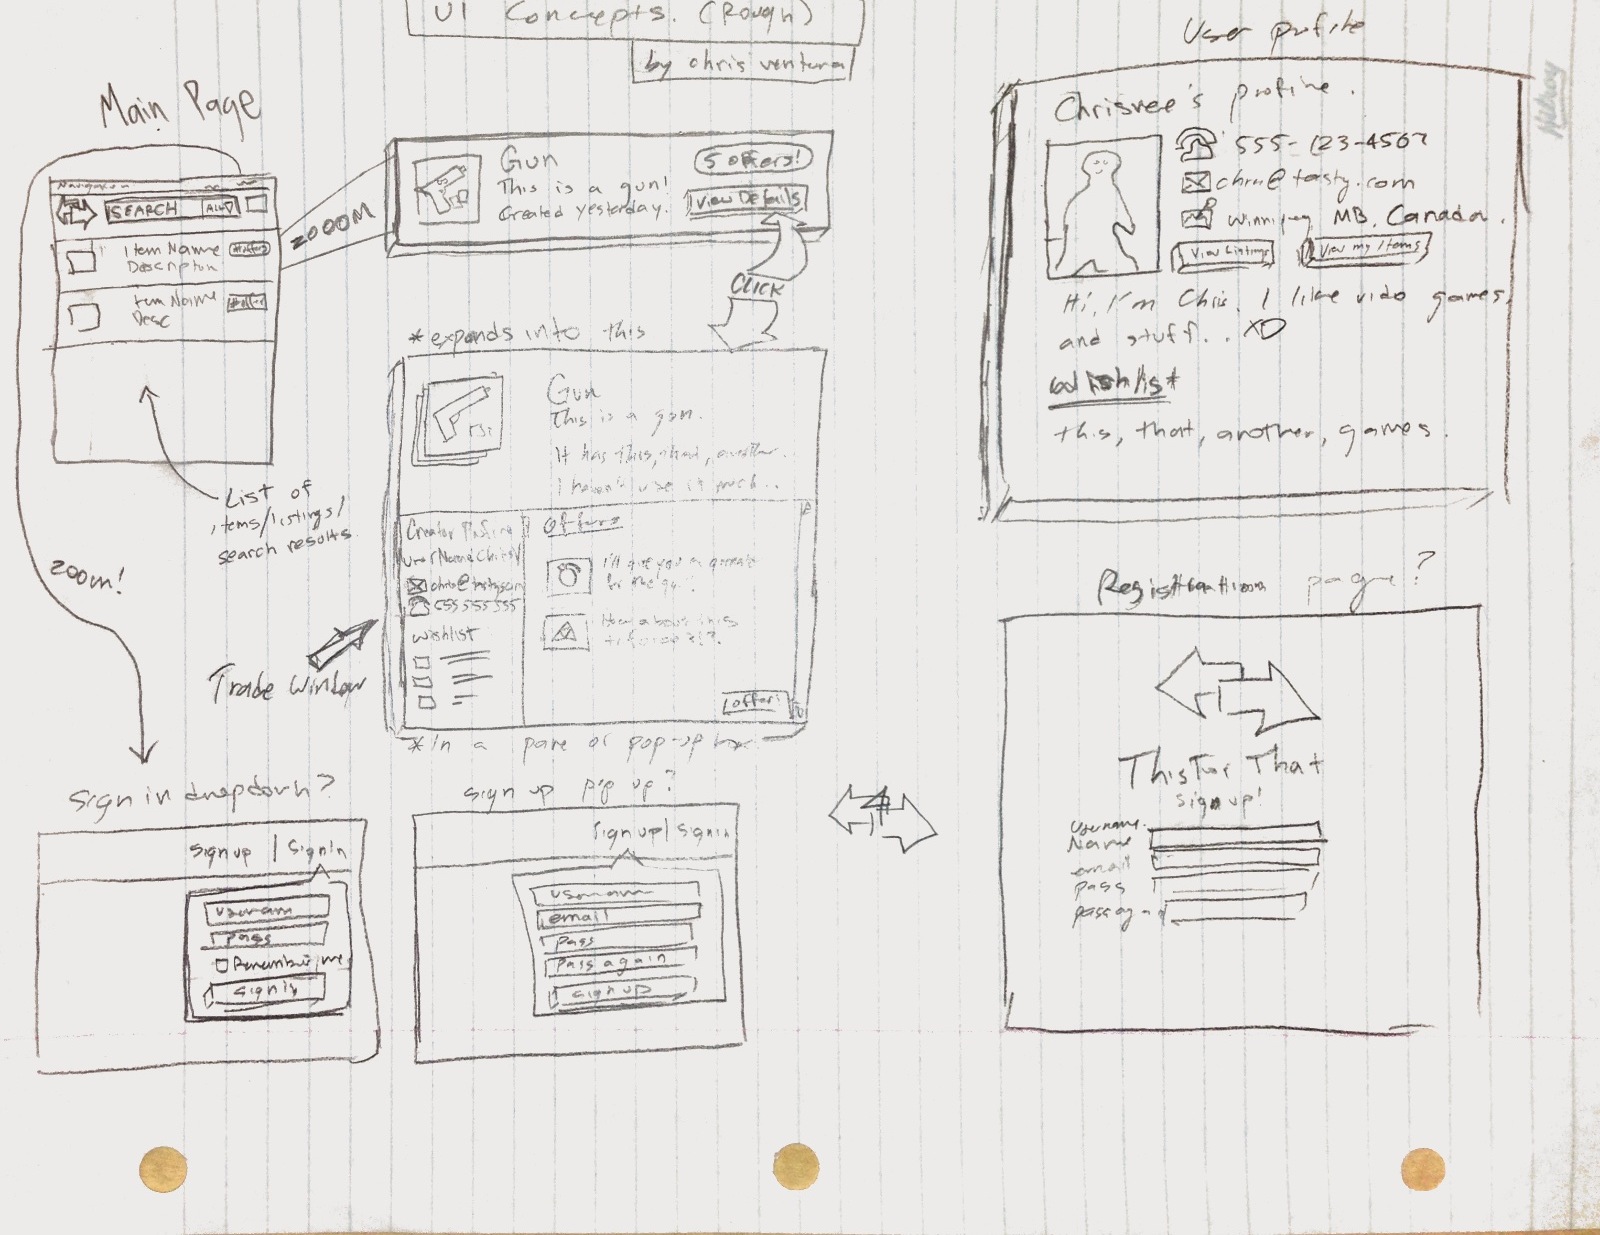 UI Concepts. (Rough)
by chris ventura
Main Page
Navigation
SEARCH
All
Item Name
Description
#offers
Item Name
Desc
#offer
List of
items/listings/
search results
ZOOM
Gun
This is a gun!
Created yesterday.
5 offers!
View Details
CLICK
*expands into this
Gun
This is a gun.
It has this, that, another..
I haven't use it much...
Creator Profile
UserName: ChrisV
chris@tasty.com
555 555 555
wishlist
offers
I'll give you a grenade
for the gun?
How about this
offer!
Trade Window
*in a pane or pop-up box
zoom!
Sign in dropdown?
sign up | Sign in
usernam
pass
Remember me
sign in
sign up pop up?
sign up | sign in
username
email
pass
pass again
sign up
User profile
Chrisvee's profile.
555-123-4567
chris@tasty.com
Winnipeg MB, Canada.
View Listings
View my Items
Hi, I'm Chris. I like vido games,
and stuff.. XD
Wishlist
this, that, another, games.
Registration page?
ThisForThat
sign up!
Username
Name
email
pass
pass again